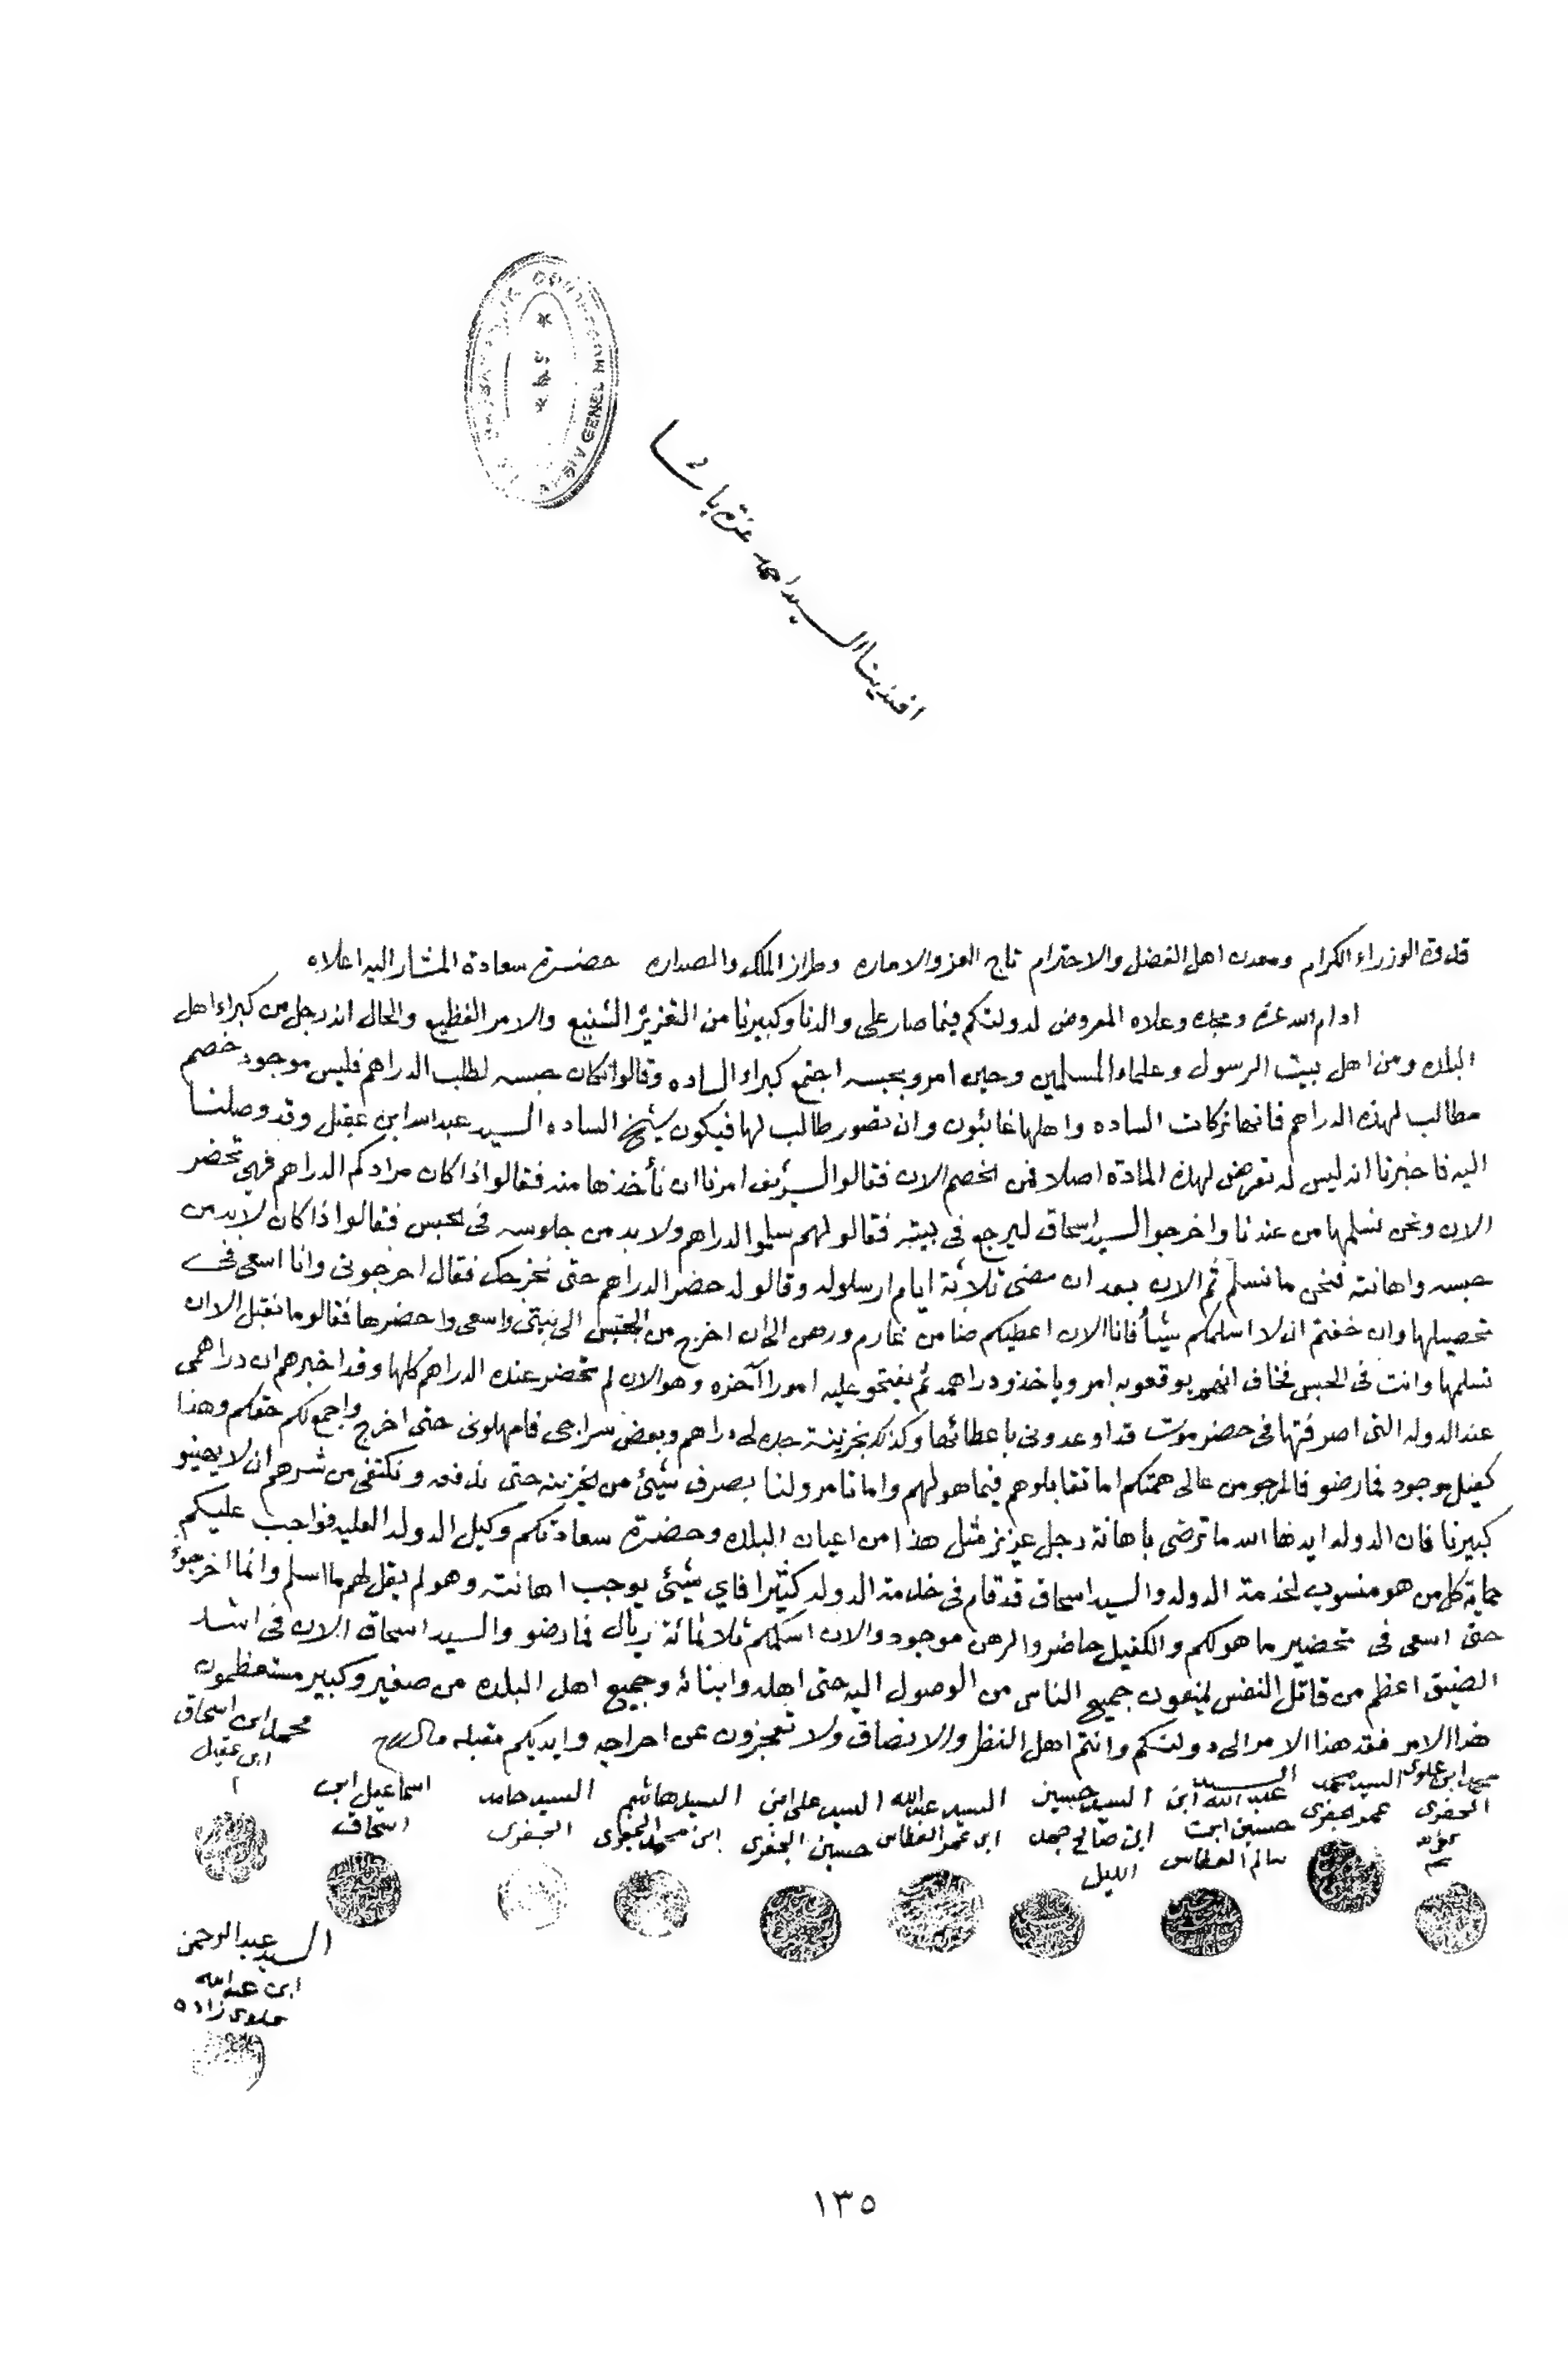 ARŞİV GENEL MÜ
افندينا السيد احمد عزت باشا
قدوة الوزراء الكرام ومعدن اهل الفضل والاحترام تاج العز والاماره وطراز الملك والصداره حضرة سعادة المشار اليه اعلاه
ادام الله عزه ومجده وعلاه المعروض لدولتكم فيما صار على والدنا وكبيرنا من التعزير الشنيع والامر الفظيع والحال انه رجل من كبراء اهل
البلده ومن اهل بيت الرسول وعلماء المسلمين وحين امرو بحبسه اجتمع كبراء الساده وقالوا ان كان حبسه لطلب الدراهم فليس موجود خصم
مطالب لهذه الدراهم فانها تركات الساده واهلها غائبون وان تصور طالب لها فيكون شيخ الساده السيد عبدالله ابن عقيل وقد وصلنا
اليه فاخبرنا انه ليس له تعرض لهذه المادة اصلا فمن الخصم الان فقالو الشريف امرنا ان نأخذها منه فقالوا اذا كان مرادكم الدراهم فهي تحضر
الان ونحن نسلمها من عندنا واخرجو السيد اسحاق ليرجع في بيته فقالو لهم سلمو الدراهم ولا بد من جلوسه في الحبس فقالوا اذا كان لابد من
حبسه واهانته فنحن ما نسلم ثم الان بعد ان مضى ثلاثة ايام ارسلوله وقالو له حضر الدراهم حتى نخرجك فقال اخرجوني وانا اسعى في
تحصيلها وان خفتم ان لا اسلمكم شيأ فانا الان اعطيكم ضامن غارم ورهن الى ان اخرج من الحبس الى بيتي واسعى واحضرها فقالو ما نقبل الا ان
تسلمها وانت في الحبس فخاف انهم يوقعو به امر وياخذو دراهمه ثم يفتحو عليه امورا آخره وهو الان لم تحضر عنده الدراهم كلها وقد اخبرهم ان دراهمى
عند الدوله التى اصرفتها في حضرموت قد اوعدونى باعطائها وكذلك بخزينة جده لى دراهم وبعض سراجى فامهلونى حتى اخرج واجمع لكم حقكم وهذا
كفيل موجود فما رضو فالمرجو من عالى همتكم اما تقابلوهم فيما هو لهم واما تامرو لنا بصرف شيئ من الخزينه حتى ندفعه ونكتفى من شرهم ان لا يهينو
كبيرنا فان الدوله ايدها الله ما ترضى باهانة رجل عزيز مثل هذا من اعيان البلده وحضرة سعادتكم وكيل الدوله العليه فواجب عليكم
حماية كل من هو منسوب لخدمة الدوله والسيد اسحاق قد قام في خدمة الدوله كثيرا فاي شيئ يوجب اهانته وهو لم يقل لهم ما اسلم وانما اخرجوني
حتى اسعى في تحضير ما هو لكم والكفيل حاضر والرهن موجود والان اسلمكم ثلاثمائة ريال فما رضو والسيد اسحاق الان في اشد
الضيق اعظم من قاتل النفس يمنعون جميع الناس من الوصول اليه حتى اهله وابنائه وجميع اهل البلده من صغير وكبير مستعظمون
هذا الامر فقد هذا الامر الى دولتكم وانتم اهل النظر والانصاف ولا تعجزون عن اخراجه وايديكم مقبله
محمد ابن اسحاق ابن عقيل
ابن علوى الجفرى
السيد محمد عمر الجفرى
السيد عبدالله ابن حسين ابن سالم العطاس
السيد حسين ابن صالح جمل الليل
السيد عبدالله ابن عمر العطاس
السيد على ابن حسين الجفرى
السيد هاشم ابن محمد الجفرى
السيد حامد الجفرى
اسماعيل ابن اسحاق
السيد عبدالرحمن ابن عبدالله علوى زاده
١٣٥